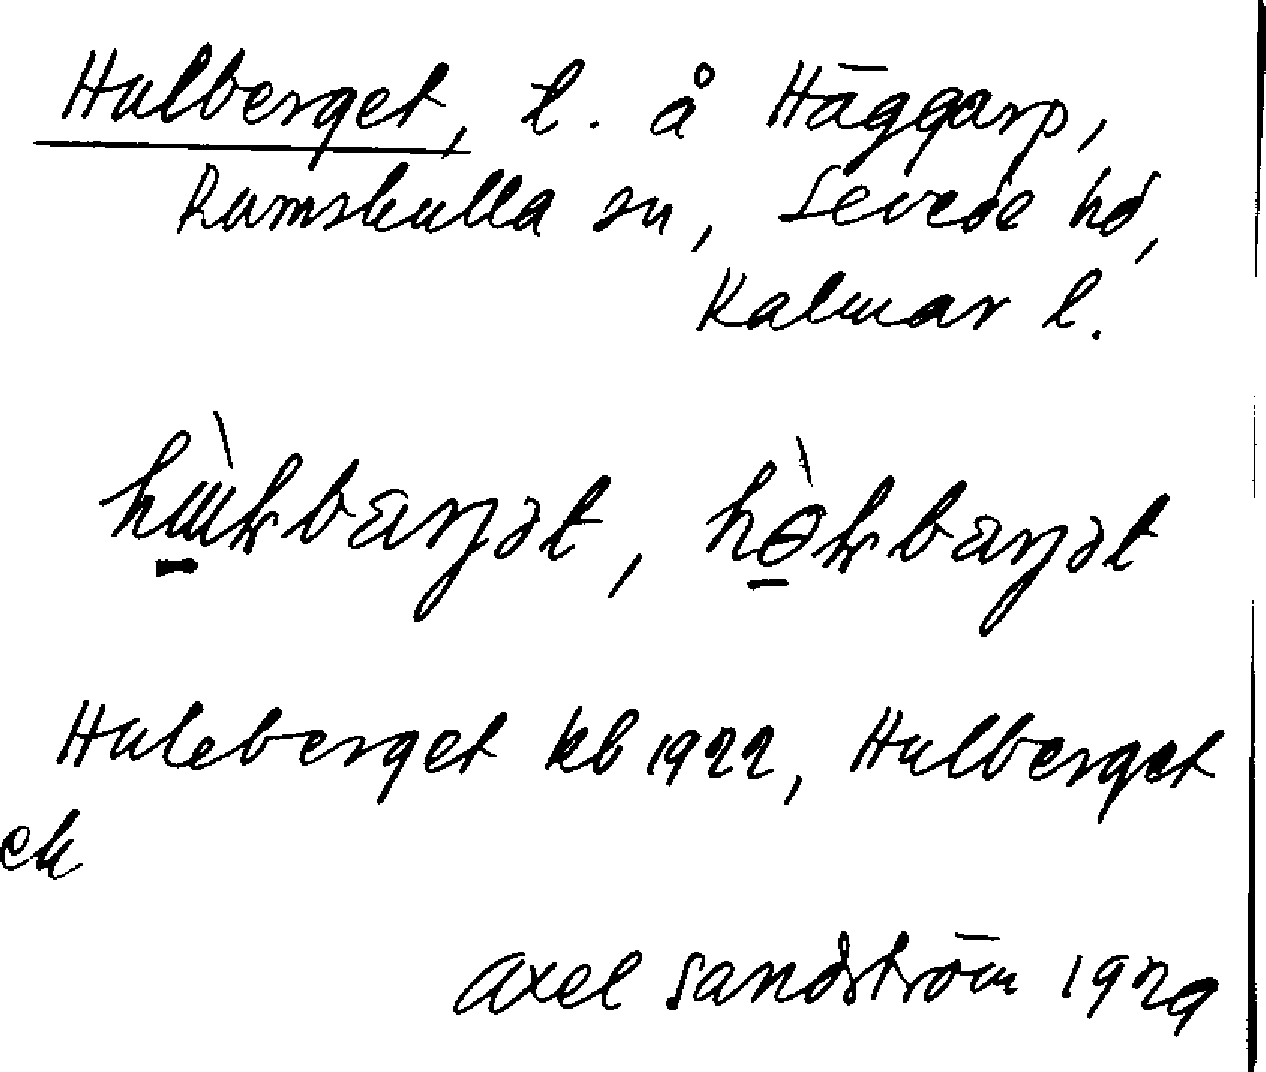 Hulberget, l. å Häggarp,
Ramskulla sn, Sevede hd,
Kalmar l.
Huleberget kb 1922, Hulberget
ek
Axel Sandström 1929